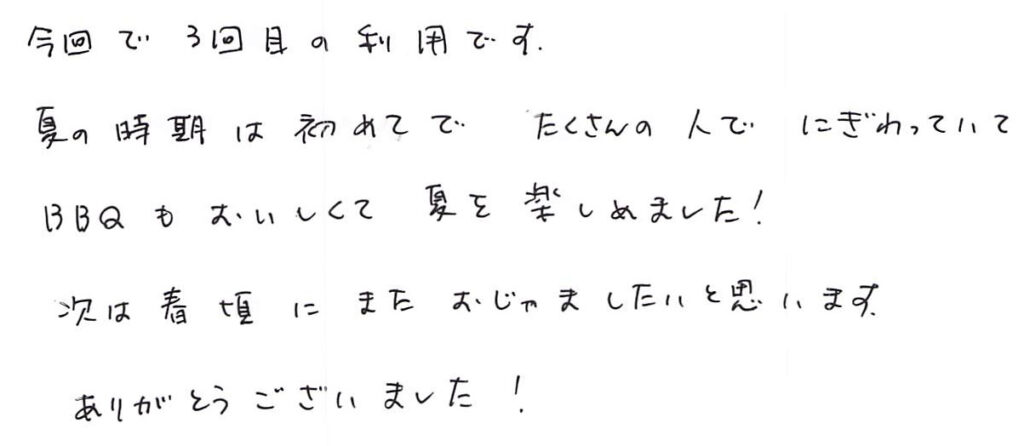 今回で3回目の利用です.
夏の時期は初めてで たくさんの人で にぎわっていて
BBQもおいしくて 夏を楽しめました!
次は春頃に また おじゃましたいと思います.
ありがとうございました!